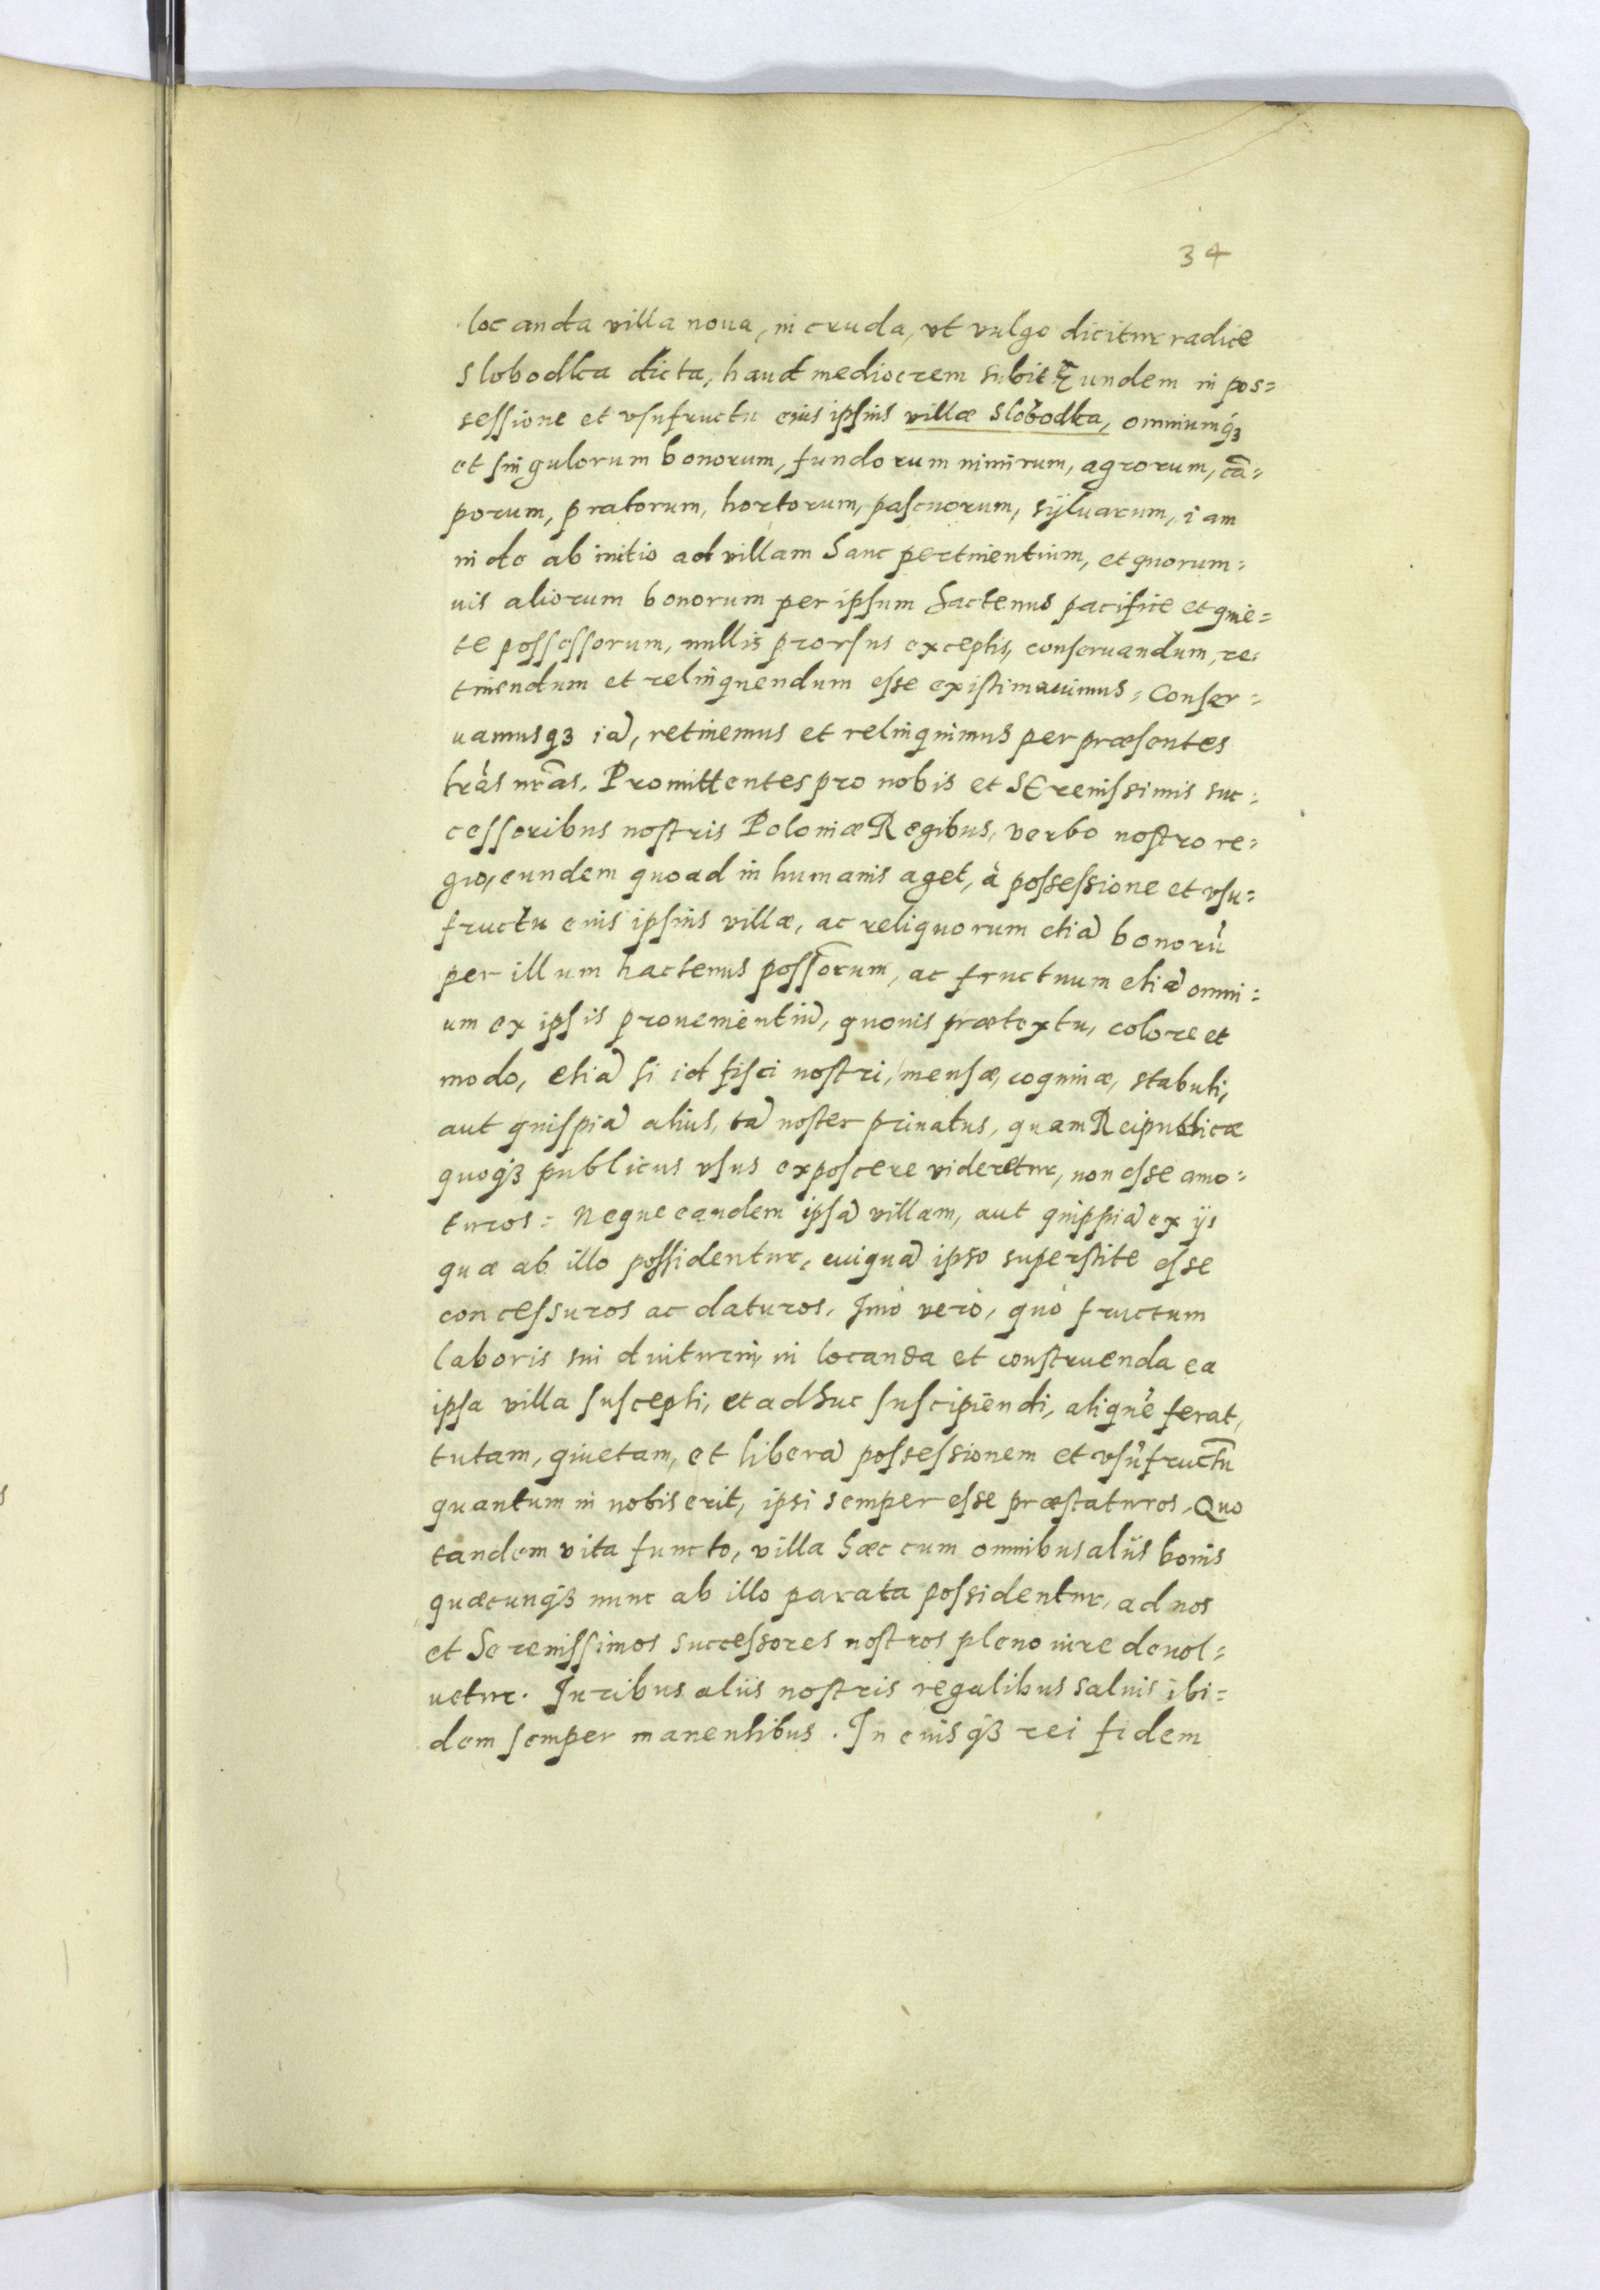 34
locanda villa noua, in cruda, vt vulgo dicitur radice
Slobodka dicta, haud mediocrem subit Eundem in pos=
sessione et vsufructu eius ipsius villæ Slobodka, omniumq́ꝫ
et singulorum bonorum, fundorum nimirum, agrorum, cā=
porum, pratorum, hortorum, pascuorum, sÿluarum, iam
inde ab initio ad villam hanc pertinentium, et quorum=
uis aliorum bonorum per ipsum hactenus pacifice et quie=
te possessorum, nullis prorsus exceptis, conseruandum, re=
tinendum et relinquendum esse existimauimus = Conser=
uamusqꝫ iā, retinemus et relinquimus per præsentes
lrās nrās. Promittentes pro nobis et SErenissimis suc=
cessoribus nostris Poloniæ Regibus, verbo nostro re=
gio, eundem quoad in humanis aget, à possessione et vsu=
fructu eius ipsius villæ, ac reliquorum etiā bonorū
per illum hactenus possorum, ac fructuum etiā omni=
um ex ipsis prouenientiū, quouis prætextu, colore et
modo, etiā si id fisci nostri, mensæ, coquinæ, stabuli,
aut quispiā alius, tā noster priuatus, quam Reipublicæ
quoq́ꝫ publicus vsus exposcere videretur, non esse amo=
turos = Neque eandem ipsā villam, aut quippiā ex ijs
quæ ab illo possidentur, cuiquā ipso superstite esse
concessuros ac daturos. Imò verò, quò fructum
laboris sui diuturni, in locanda et construenda ea
ipsa villa suscepti, et adhuc suscipiendi, aliquē ferat,
tutam, quietam, et liberā possessionem et vsūfructū
quantum in nobis erit, ipsi semper esse præstaturos. Quo
tandem vita functo, villa hæc cum omnibus aliis bonis
quæcunq́ꝫ nunc ab illo parata possidentur, ad nos
et Serenissimos successores nostros pleno iure deuol=
uetur. Iuribus aliis nostris regalibus saluis ibi=
dem semper manentibus. In cuius q́ꝫ rei fidem